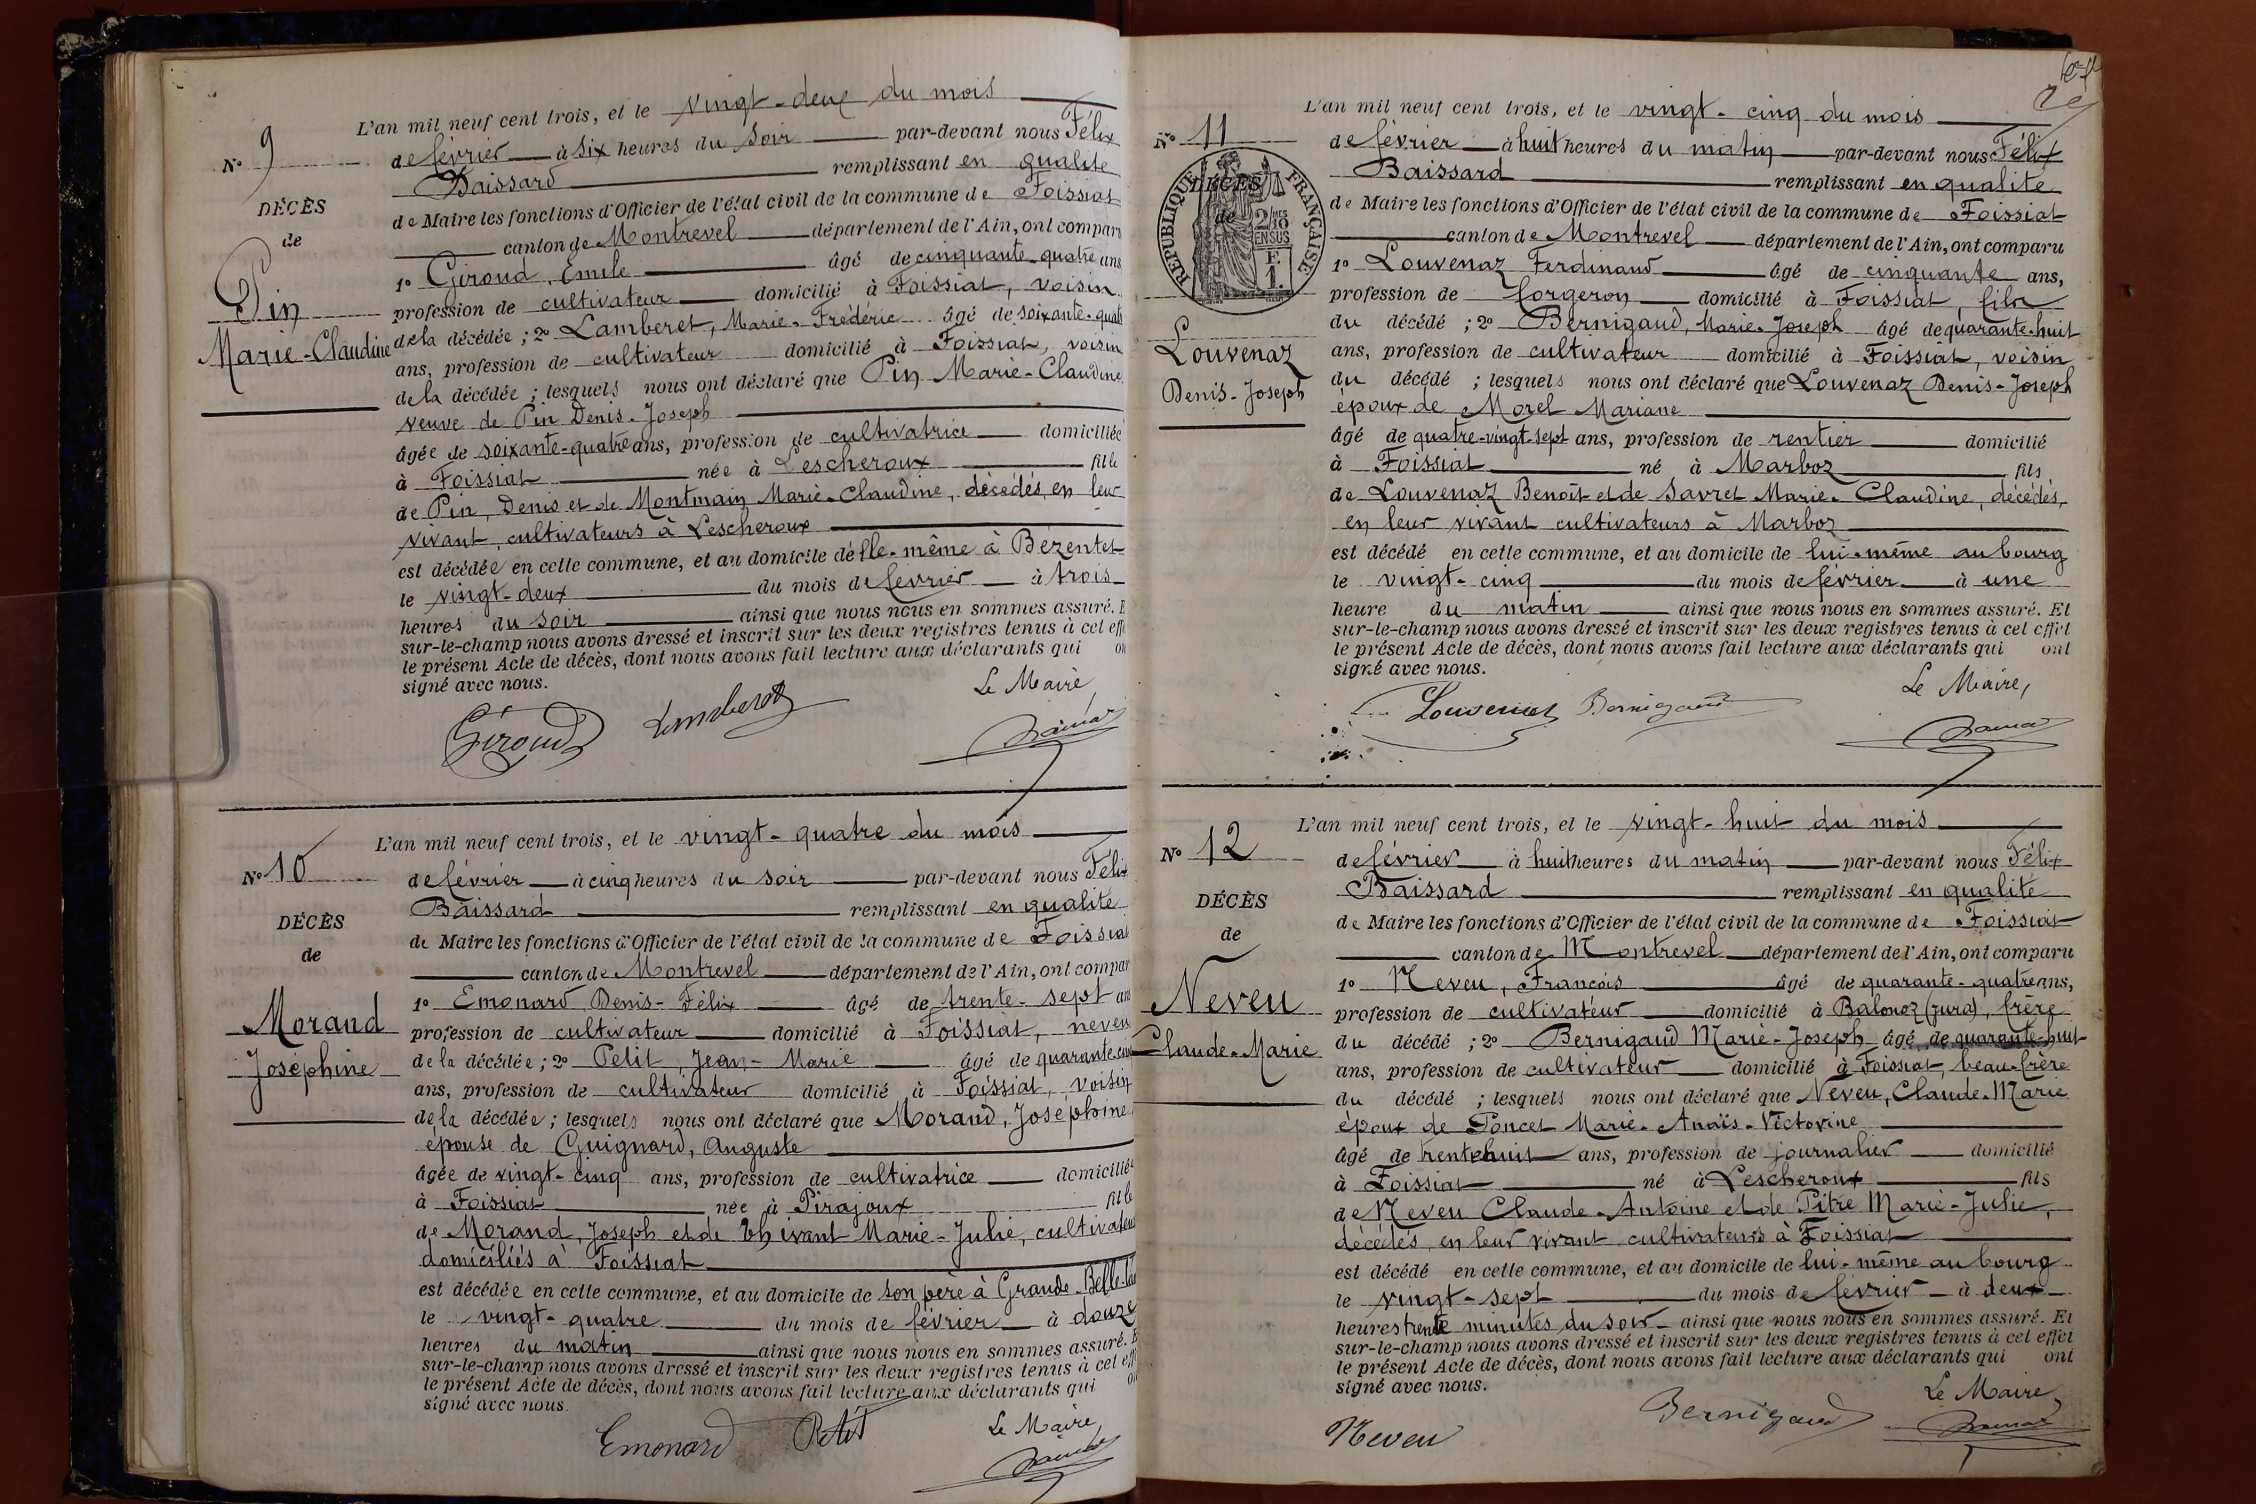 N° 9
DÉCÈS
de
Pin
Marie-Claudine
L'an mil neuf cent trois, et le vingt-deux du mois
de février à six heures du soir par-devant nous Félix
Baissard remplissant en qualité
de Maire les fonctions d'Officier de l'état civil de la commune de Foissiat
canton de Montrevel département de l'Ain, ont compar
1° Giroud, Emile âgé de cinquante-quatre ans
profession de cultivateur domicilié à Foissiat, voisin
de la décédée ; 2° Lamberet, Marie-Frédéric âgé de soixante-quatr
ans, profession de cultivateur domicilié à Foissiat, voisin
de la décédée ; lesquels nous ont déclaré que Pin Marie-Claudine,
veuve de Pin Denis-Joseph
âgée de soixante-quatre ans, profession de cultivatrice domiciliée
à Foissiat née à Lescheroux fille
de Pin, Denis et de Montmain Marie-Claudine, décédés, en leur
vivant, cultivateurs à Lescheroux
est décédée en cette commune, et au domicile d'elle-même à Bézentet
le vingt-deux du mois de février à trois
heures du soir ainsi que nous nous en sommes assuré. E
sur-le-champ nous avons dressé et inscrit sur les deux registres tenus à cet eff
le présent Acte de décès, dont nous avons fait lecture aux déclarants qui on
signé avec nous.
Le Maire,
Giroud Lamberet
N° 10
DÉCÈS
de
Morand
Joséphine
L'an mil neuf cent trois, et le vingt-quatre du mois
de février à cinq heures du soir par-devant nous Félix
Baissard remplissant en qualité
de Maire les fonctions d'Officier de l'état civil de la commune de Foissiat
canton de Montrevel département de l'Ain, ont compar
1° Emonard Denis-Félix âgé de trente-sept an
profession de cultivateur domicilié à Foissiat, neveu
de la décédée ; 2° Petit Jean-Marie âgé de quarante-cinq
ans, profession de cultivateur domicilié à Foissiat, voisin
de la décédée ; lesquels nous ont déclaré que Morand, Joséphine,
épouse de Guignard, Auguste
âgée de vingt-cinq ans, profession de cultivatrice domiciliée
à Foissiat née à Pirajoux fille
de Morand, Joseph et de Thivant Marie-Julie, cultivateurs
domiciliés à Foissiat
est décédée en cette commune, et au domicile de son père à Grande-Belle-
le vingt-quatre du mois de février à douze
heures du matin ainsi que nous nous en sommes assuré. E
sur-le-champ nous avons dressé et inscrit sur les deux registres tenus à cet eff
le présent Acte de décès, dont nous avons fait lecture aux déclarants qui on
signé avec nous.
Le Maire,
Emonard Petit
N° 11
RÉPUBLIQUE FRANÇAISE
DÉCÈS
de
2/10 MES
EN SUS
F.
1.
Louvenaz
Denis-Joseph
L'an mil neuf cent trois, et le vingt-cinq du mois
de février à huit heures du matin par-devant nous Félix
Baissard remplissant en qualité
de Maire les fonctions d'Officier de l'état civil de la commune de Foissiat
canton de Montrevel département de l'Ain, ont comparu
1° Louvenaz Ferdinand âgé de cinquante ans,
profession de forgeron domicilié à Foissiat, fils
du décédé ; 2° Bernigaud, Marie-Joseph âgé de quarante-huit
ans, profession de cultivateur domicilié à Foissiat, voisin
du décédé ; lesquels nous ont déclaré que Louvenaz Denis-Joseph
époux de Morel Mariane
âgé de quatre-vingt-sept ans, profession de rentier domicilié
à Foissiat né à Marboz fils
de Louvenaz Benoît et de Savret Marie-Claudine, décédés,
en leur vivant cultivateurs à Marboz
est décédé en cette commune, et au domicile de lui-même au bourg
le vingt-cinq du mois de février à une
heure du matin ainsi que nous nous en sommes assuré. Et
sur-le-champ nous avons dressé et inscrit sur les deux registres tenus à cet effet
le présent Acte de décès, dont nous avons fait lecture aux déclarants qui ont
signé avec nous.
Le Maire,
Louvenaz Bernigaud
N° 12
DÉCÈS
de
Neveu
Claude-Marie
L'an mil neuf cent trois, et le vingt-huit du mois
de février à huit heures du matin par-devant nous Félix
Baissard remplissant en qualité
de Maire les fonctions d'Officier de l'état civil de la commune de Foissiat
canton de Montrevel département de l'Ain, ont comparu
1° Neveu, François âgé de quarante-quatre ans,
profession de cultivateur domicilié à Balonoz (jura), frère
du décédé ; 2° Bernigaud Marie-Joseph âgé de quarante-huit
ans, profession de cultivateur domicilié à Foissiat, beau-frère
du décédé ; lesquels nous ont déclaré que Neveu, Claude-Marie
époux de Poncet Marie-Anaïs-Victorine
âgé de trente huit ans, profession de journalier domicilié
à Foissiat né à Lescheroux fils
de Neveu Claude-Antoine et de Pitre Marie-Julie,
décédés, en leur vivant cultivateurs à Foissiat
est décédé en cette commune, et au domicile de lui-même au bourg
le vingt-sept du mois de février à deux
heures trente minutes du soir ainsi que nous nous en sommes assuré. Et
sur-le-champ nous avons dressé et inscrit sur les deux registres tenus à cet effet
le présent Acte de décès, dont nous avons fait lecture aux déclarants qui ont
signé avec nous.
Le Maire
Neveu Bernigaud